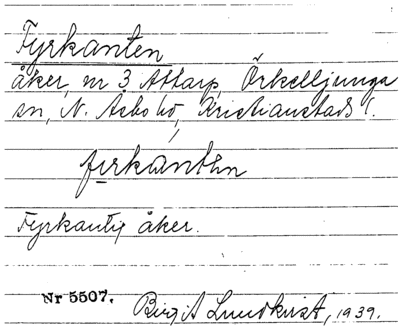 Fyrkanten
åker, nr 3 Attarp, Örkelljunga
sn, N. Åsbo hd, Kristianstads l.
fyrkantɛn
Fyrkantig åker.
Nr 5507. Birgit Lundkvist, 1939.